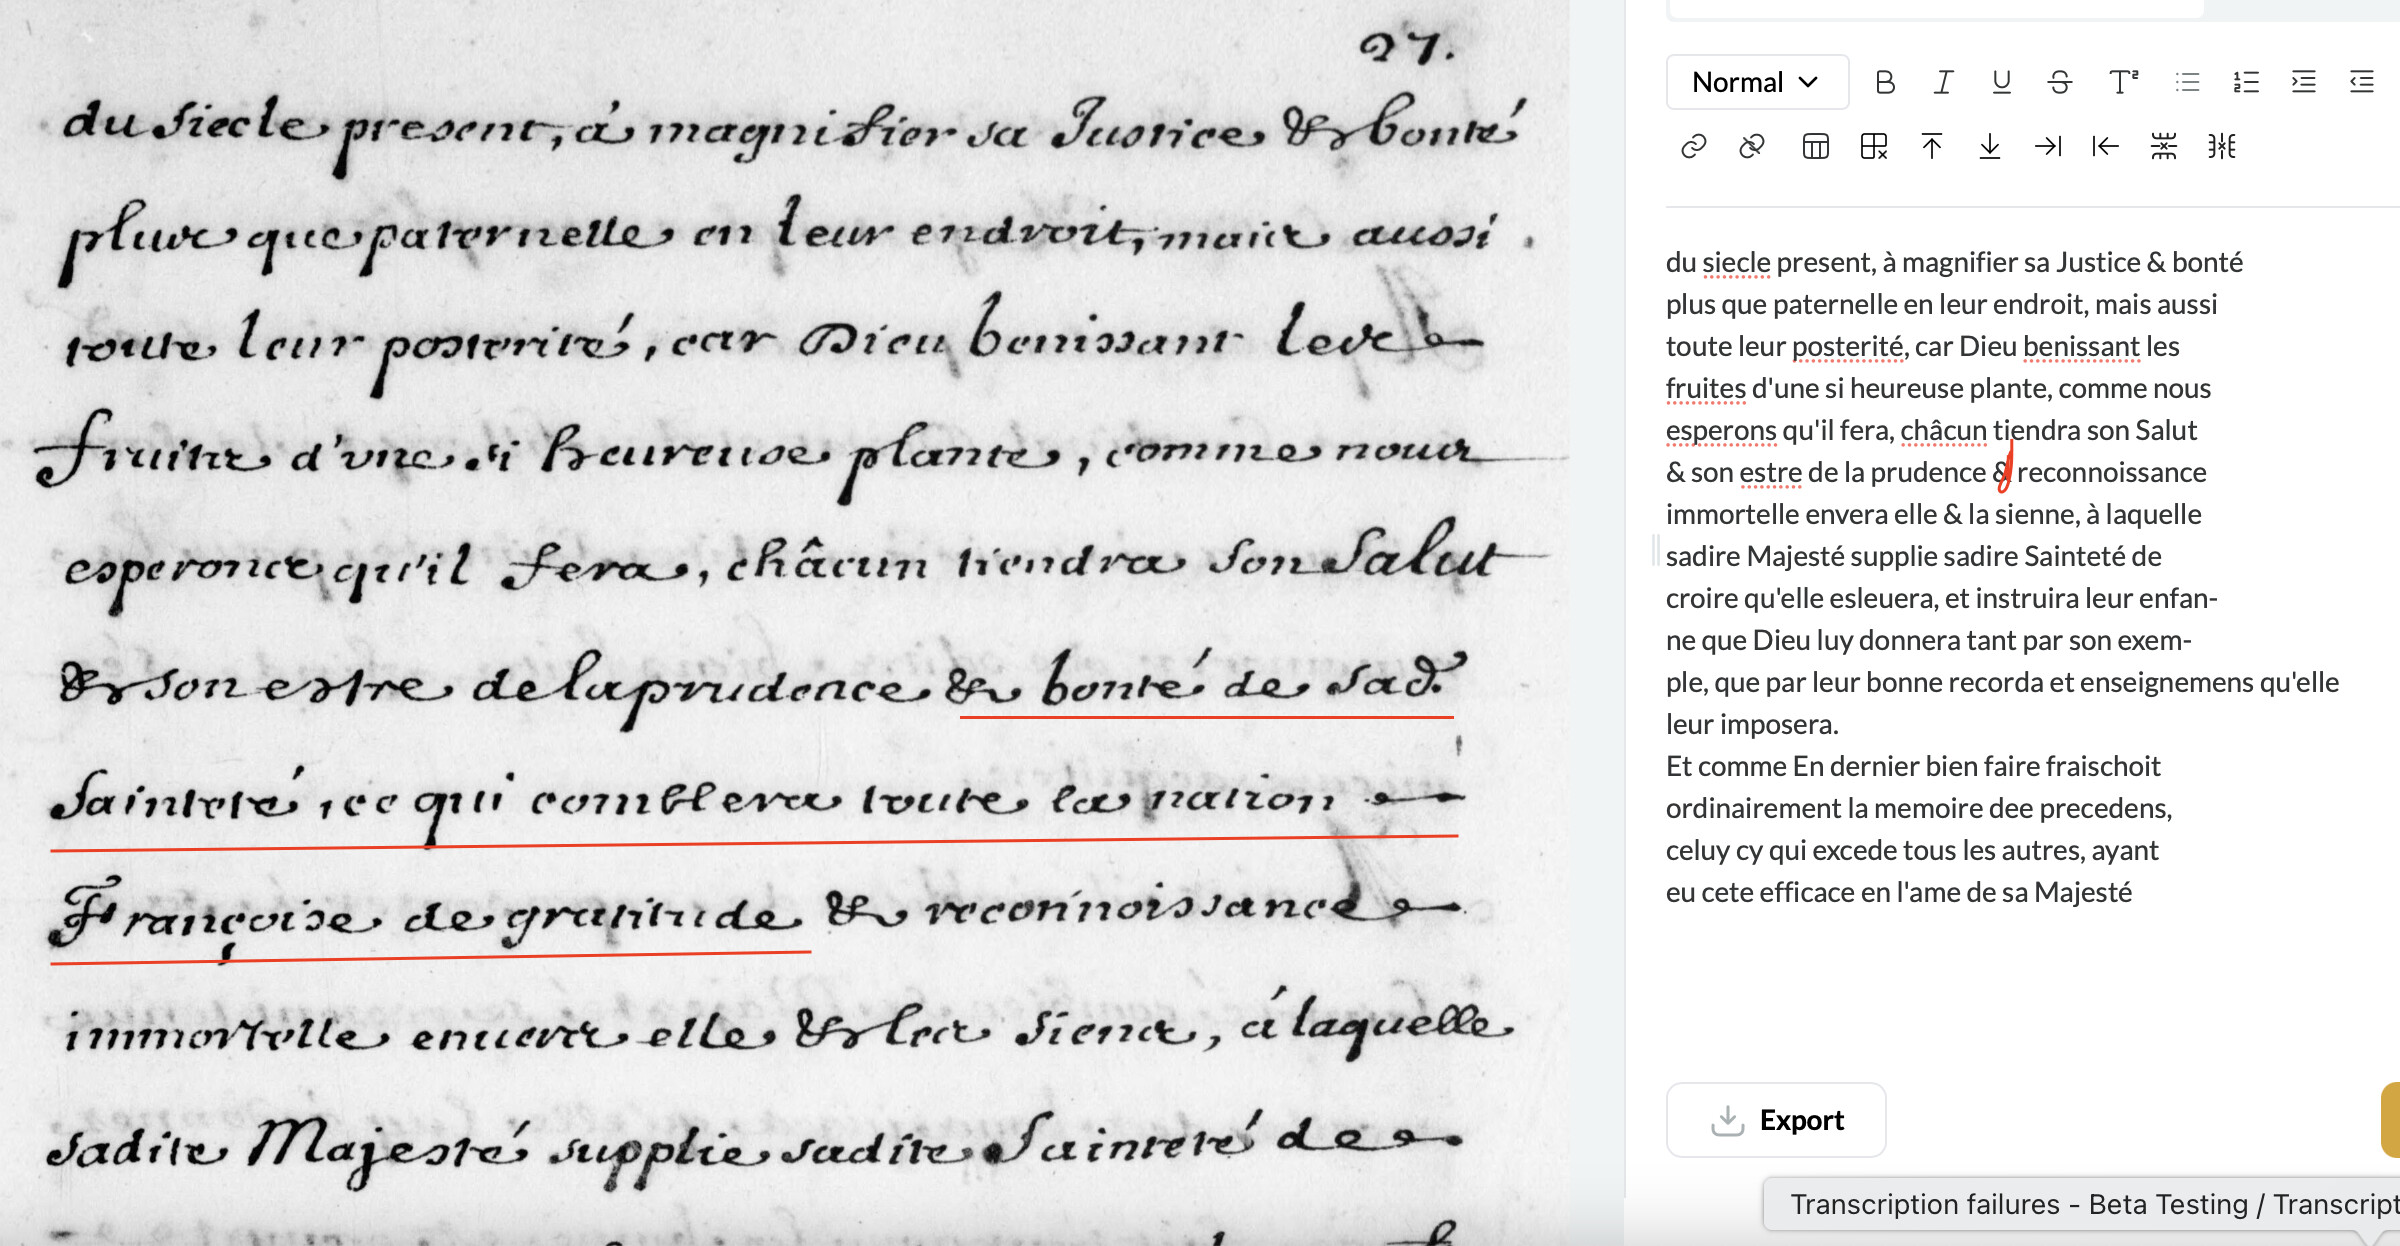 27.
du siecle present, à magnifier sa Justice & bonté
plus que paternelle en leur endroit, mais aussi
toute leur posterité, car Dieu benissant les
fruits d'une si heureuse plante, comme nous
esperons qu'il fera, châcun tiendra son Salut
& son estre de la prudence & bonté de sad.
Sainteté, ce qui comblera toute la nation
Françoise de gratitude & reconnoissance
immortelle envers elle & les siens, á laquelle
sadite Majesté supplie sadite Sainteté de
Normal
B I U S T²
du siecle present, à magnifier sa Justice & bonté
plus que paternelle en leur endroit, mais aussi
toute leur posterité, car Dieu benissant les
fruites d'une si heureuse plante, comme nous
esperons qu'il fera, châcun tiendra son Salut
& son estre de la prudence & reconnoissance
immortelle envera elle & la sienne, à laquelle
sadire Majesté supplie sadire Sainteté de
croire qu'elle esleuera, et instruira leur enfan-
ne que Dieu luy donnera tant par son exem-
ple, que par leur bonne recorda et enseignemens qu'elle
leur imposera.
Et comme En dernier bien faire fraischoit
ordinairement la memoire dee precedens,
celuy cy qui excede tous les autres, ayant
eu cete efficace en l'ame de sa Majesté
Export
Transcription failures - Beta Testing / Transcript